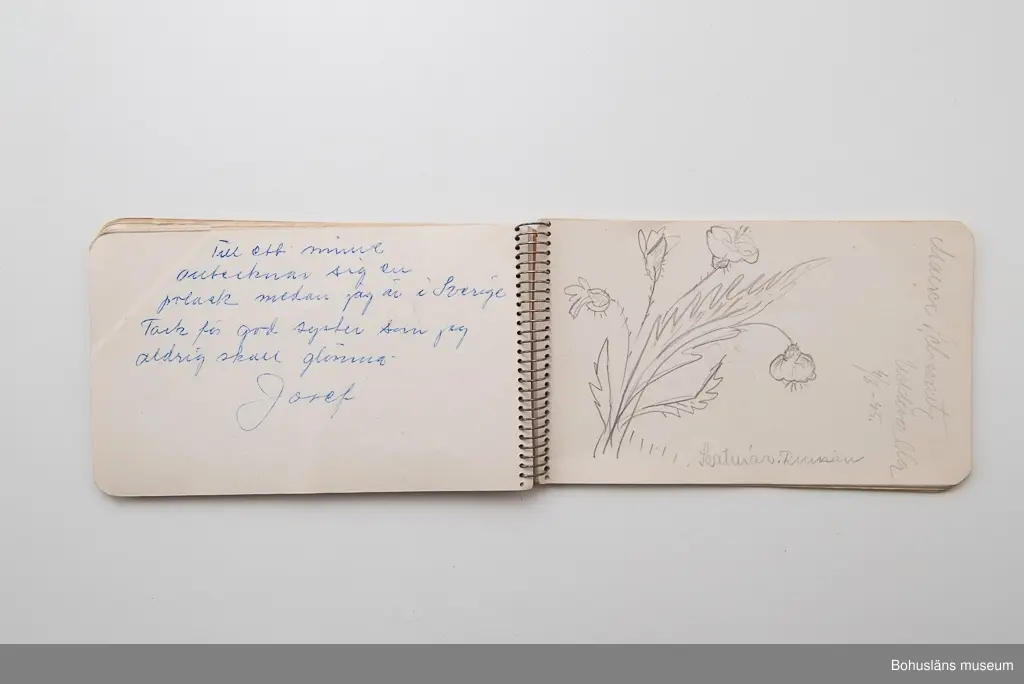 Till ett minne
antecknar sig en
polack medan jag är i Sverige
Tack för god syster som jag
aldrig skall glömma.
Josef
Uddevalla
4/8-45.
Bohusläns museum